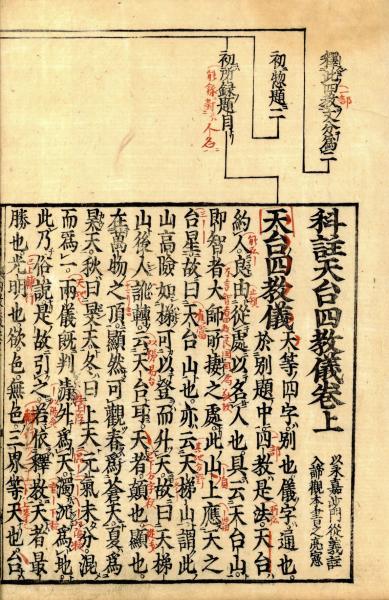 釋此四教文分為二
一部
初惣題二
初所録題目
人名
科註天台四教儀卷上
以永嘉沙門從義註
入諦觀本書
天台四教儀天等四字別也儀字通也
於別題中四教是法天台
約人良由從處以名人也具云天台山
即智者大師所棲之處此山上應天之
台星故曰天台山也亦云天梯山謂此
山高險如梯可以登而升天故曰天梯
山後人訛轉云天台耳天者顛也顯也
在萬物之頂顯然可觀春為蒼天夏為
昊天秋曰旻天冬曰上天元氣未分混
而為一兩儀既判清升為天濁沈為地
此乃俗說是故引之若依釋教天者最
勝也光明也欲色無色三界等天也台